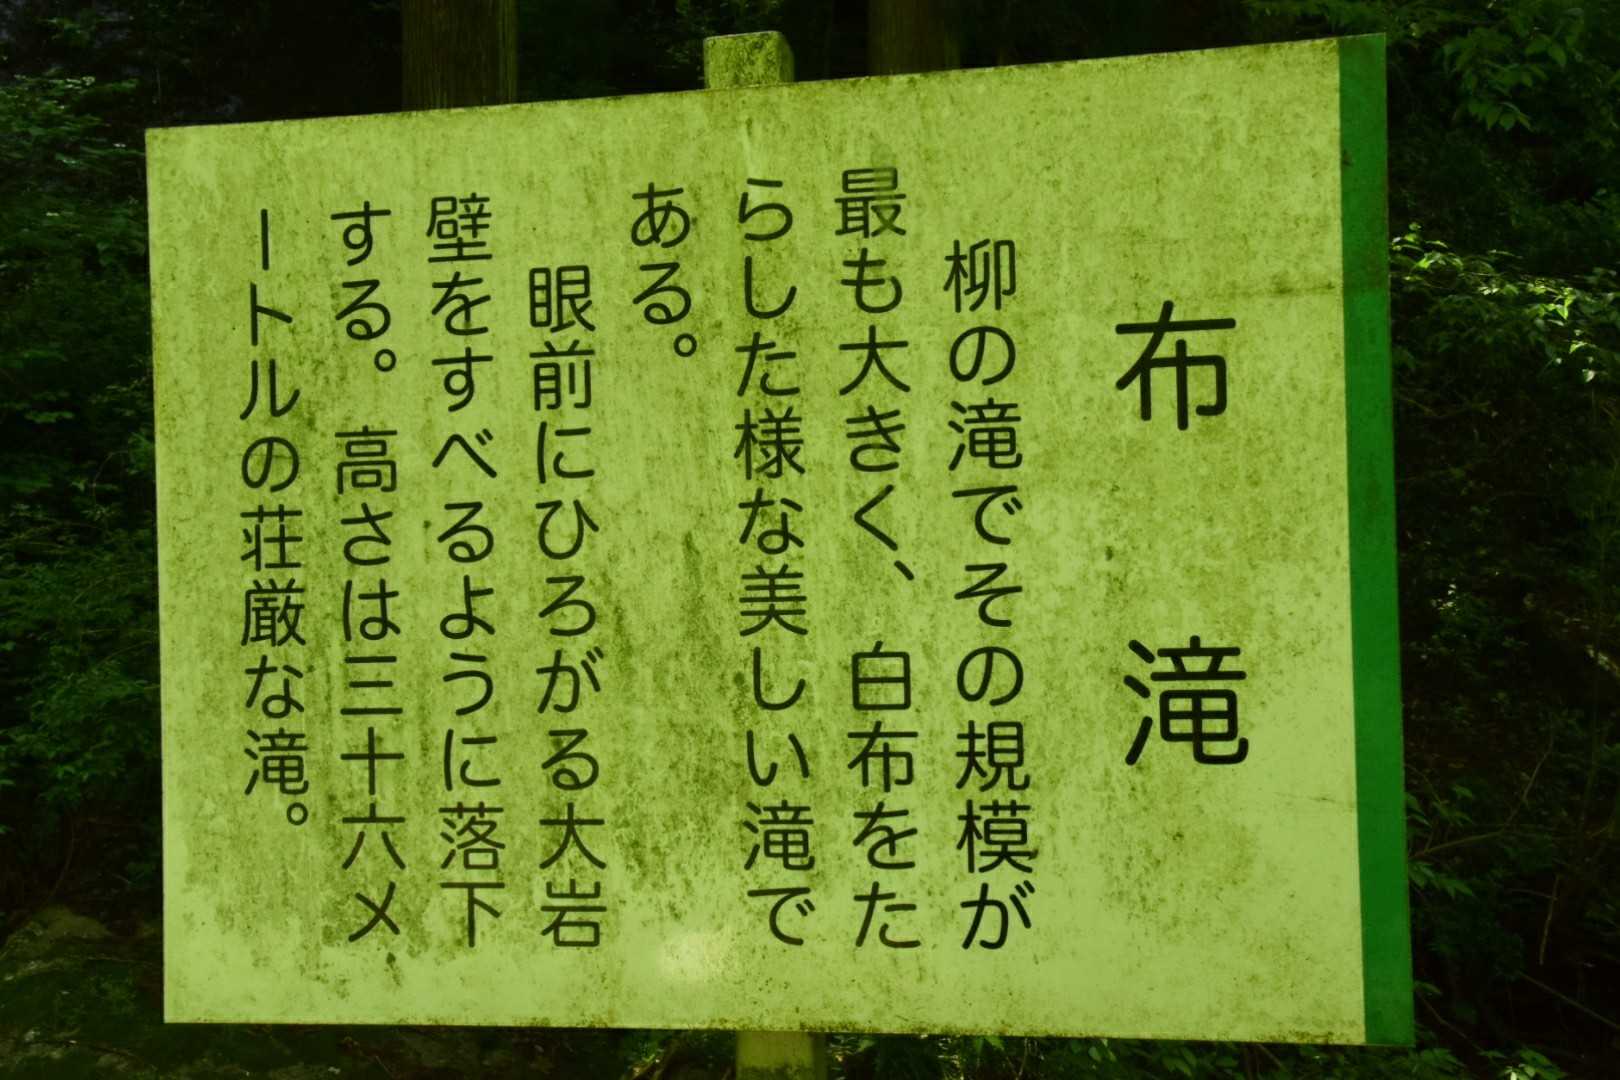 布滝
柳の滝でその規模が
最も大きく、白布をた
らした様な美しい滝で
ある。
眼前にひろがる大岩
壁をすべるように落下
する。高さは三十六メ
ートルの荘厳な滝。